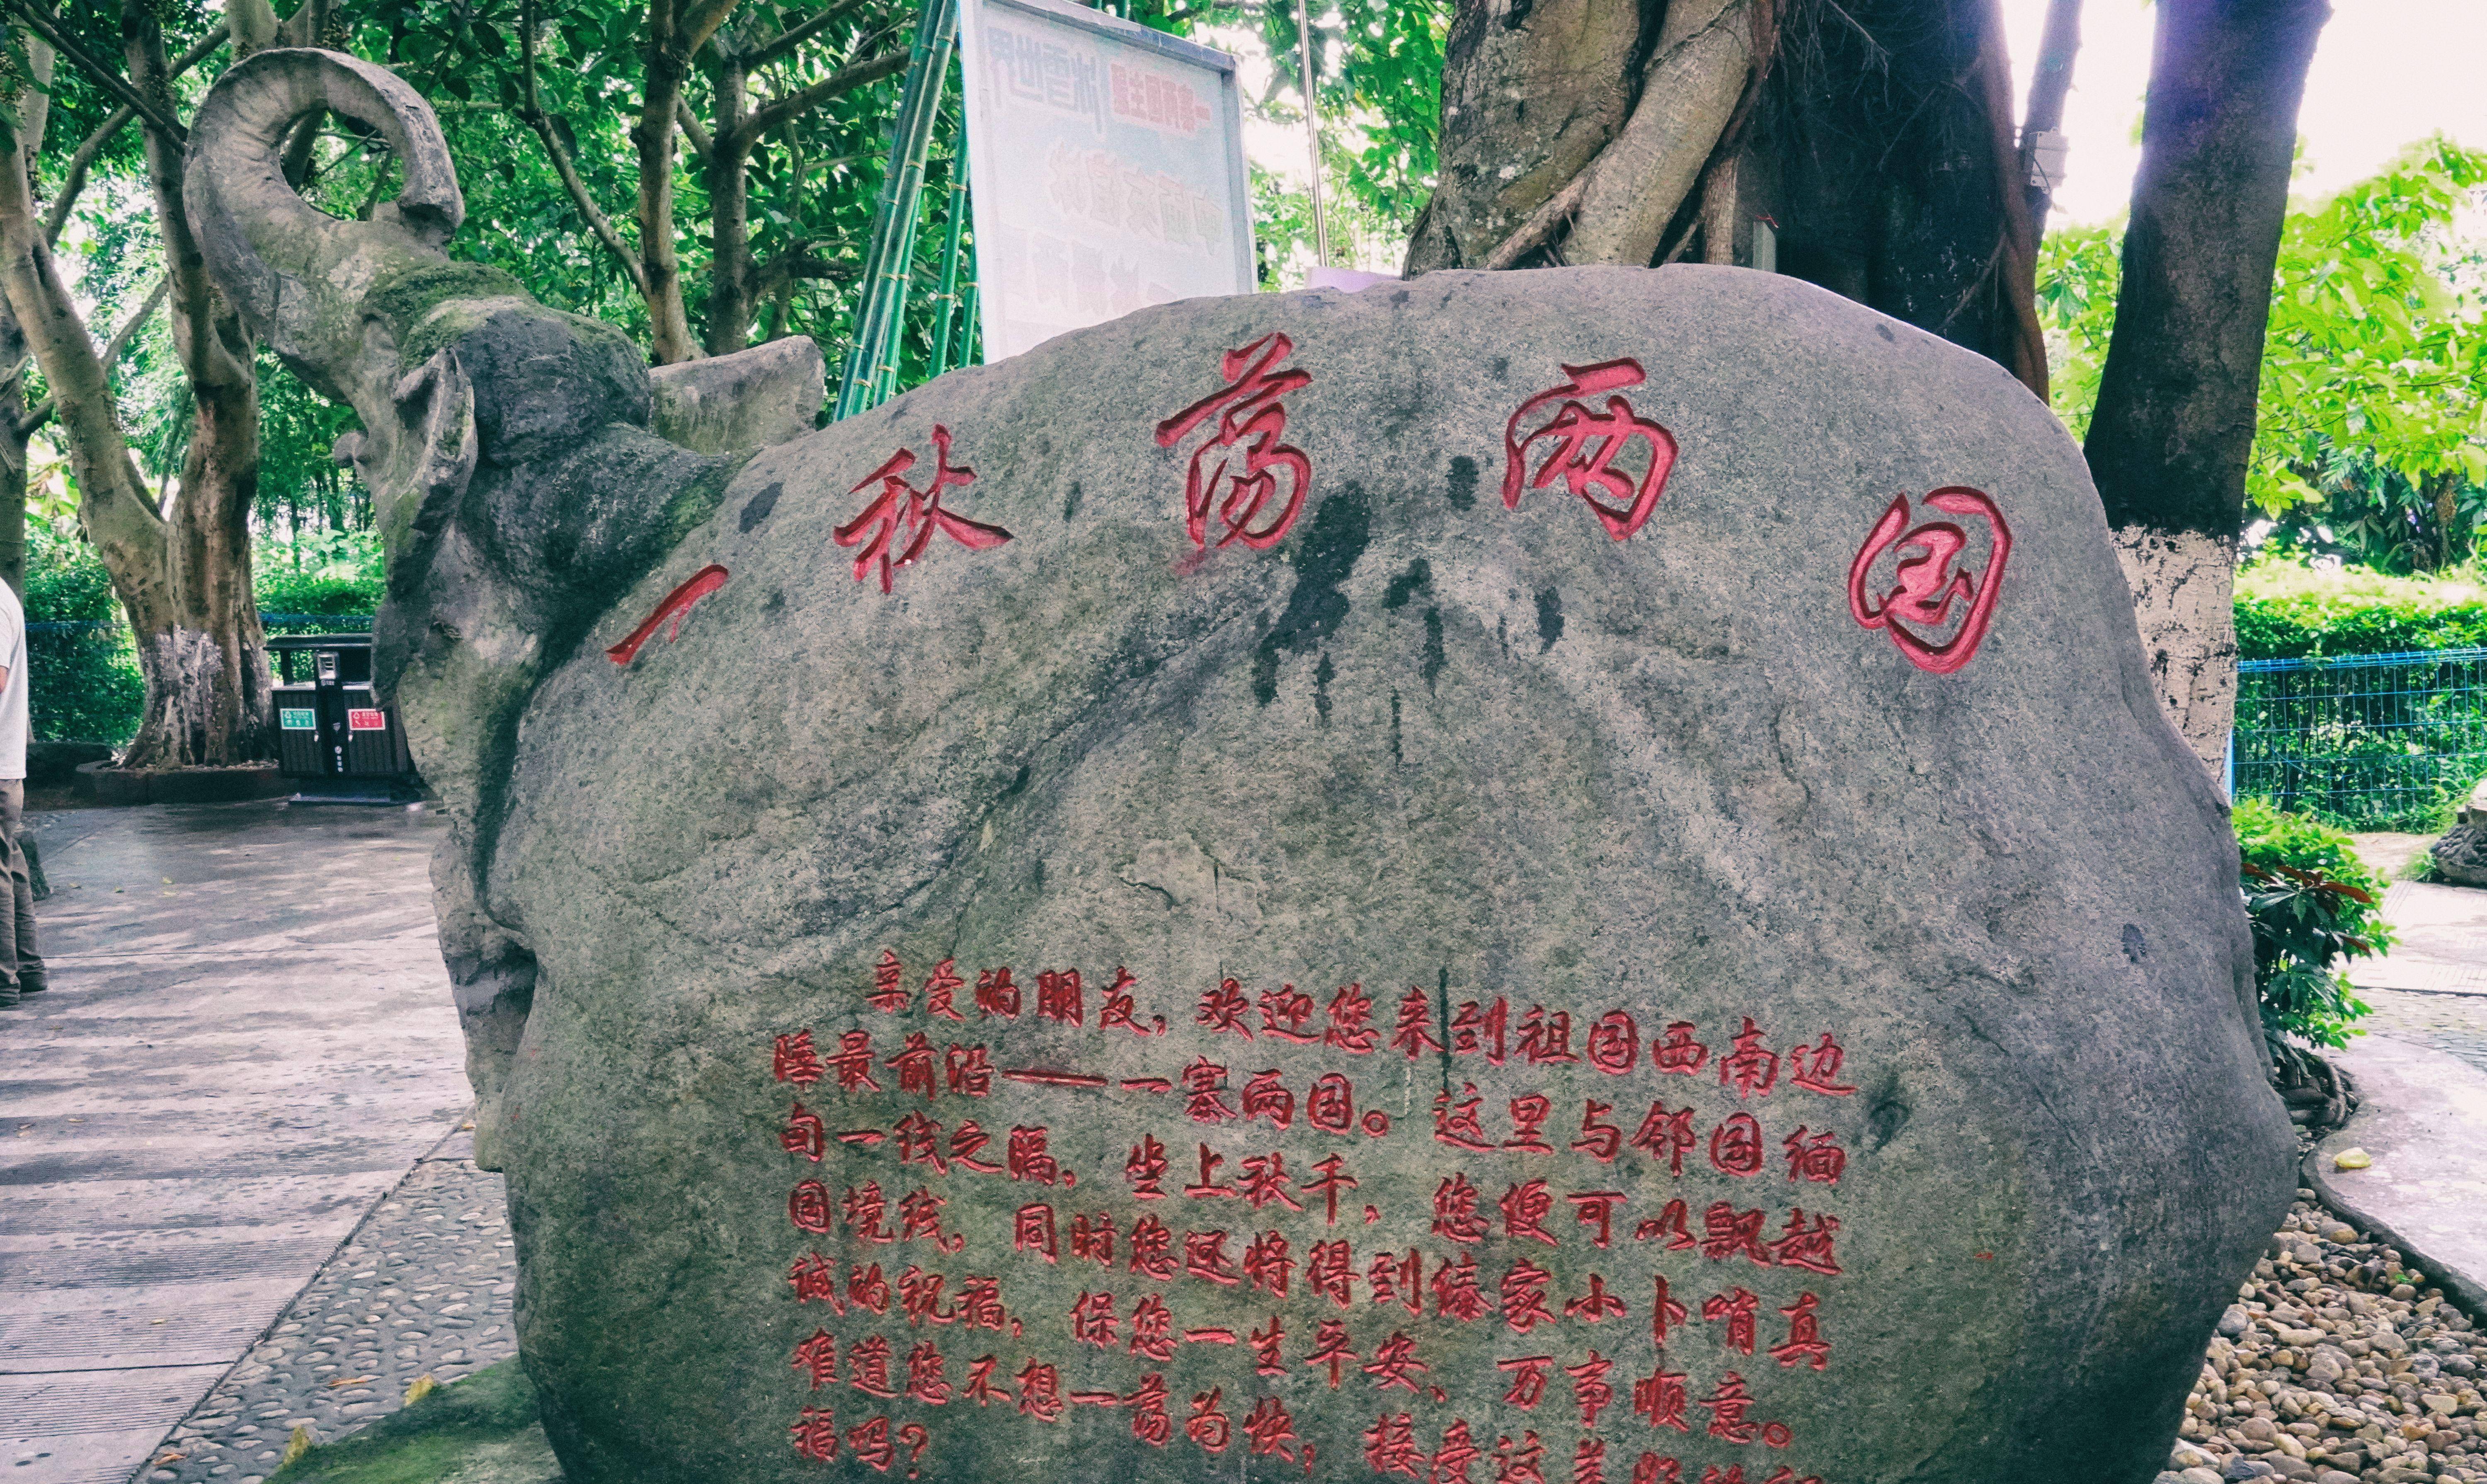 一秋荡两国
亲爱的朋友，欢迎您来到祖国西南边
陲最前沿——一寨两国。这里与邻国缅
甸一线之隔，坐上秋千，您便可以飘越
国境线，同时您还将得到傣家小卜哨真
诚的祝福，保您一生平安、万事顺意。
难道您不想一荡为快，接受这美
福吗？
一寨两国主题
冰雪世界